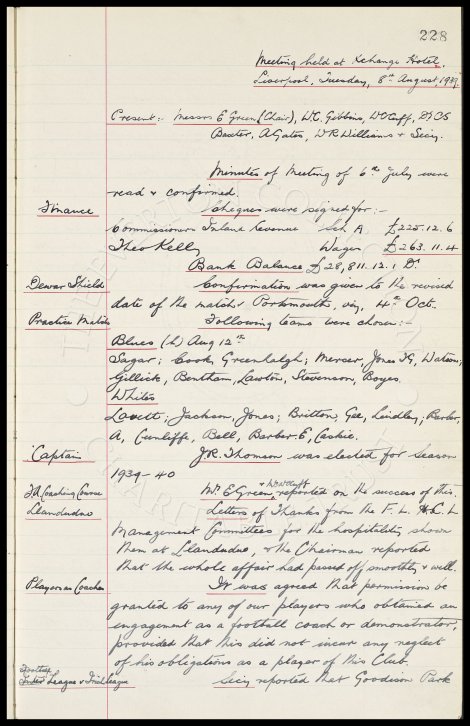 228
Meeting held at Exchange Hotel,
Liverpool, Tuesday, 8th August, 1939.
Present:- Messrs E Green (Chair), W.C. Gibbins, W.C. Cuff, Dr CS
Baxter, A Gates, W R Williams & Secy.
Minutes of Meeting of 6th July were
read & confirmed
Finance
Cheques were signed for:-
Commissioners Inland Revenue Sch. A £225.12.6
Theo Kelly Wages £263.11.4
Bank Balance, £28,811.12.1 Dr.
Dewar Shield
Confirmation was given to the revised
date of the match v Portsmouth, viz, 4th Oct.
Practice Match
Following teams were chosen:-
Blues (h) Aug 12th
Sagar; Cook, Greenhalgh; Mercer, Jones TG, Watson;
Gillick, Bentham, Lawton, Stevenson, Boyes.
Whites
Lovett; Jackson, Jones; Britton, Gee, Lindley; Barber,
A, Cunliffe, Bell, Barber E, Caskie.
Captain
J.R. Thomson was elected for Season
1939-40
F.A Coaching Course
Llandudno
Mr E Green & Mr W C Cuff reported on the success of this.
Letters of Thanks from the F.L. & C.L
Management Committees for the hospitality shown
them at Llandudno, & the Chairman reported
that the whole affair had passed off smoothly & well.
Players as Coaches
It was agreed that permission be
granted to any of our players who obtained an
engagement as a football coach or demonstrator,
provided that this did not incur any neglect
of his obligations as a player of this Club.
Football
League v Irish League
Secy reported that Goodison Park